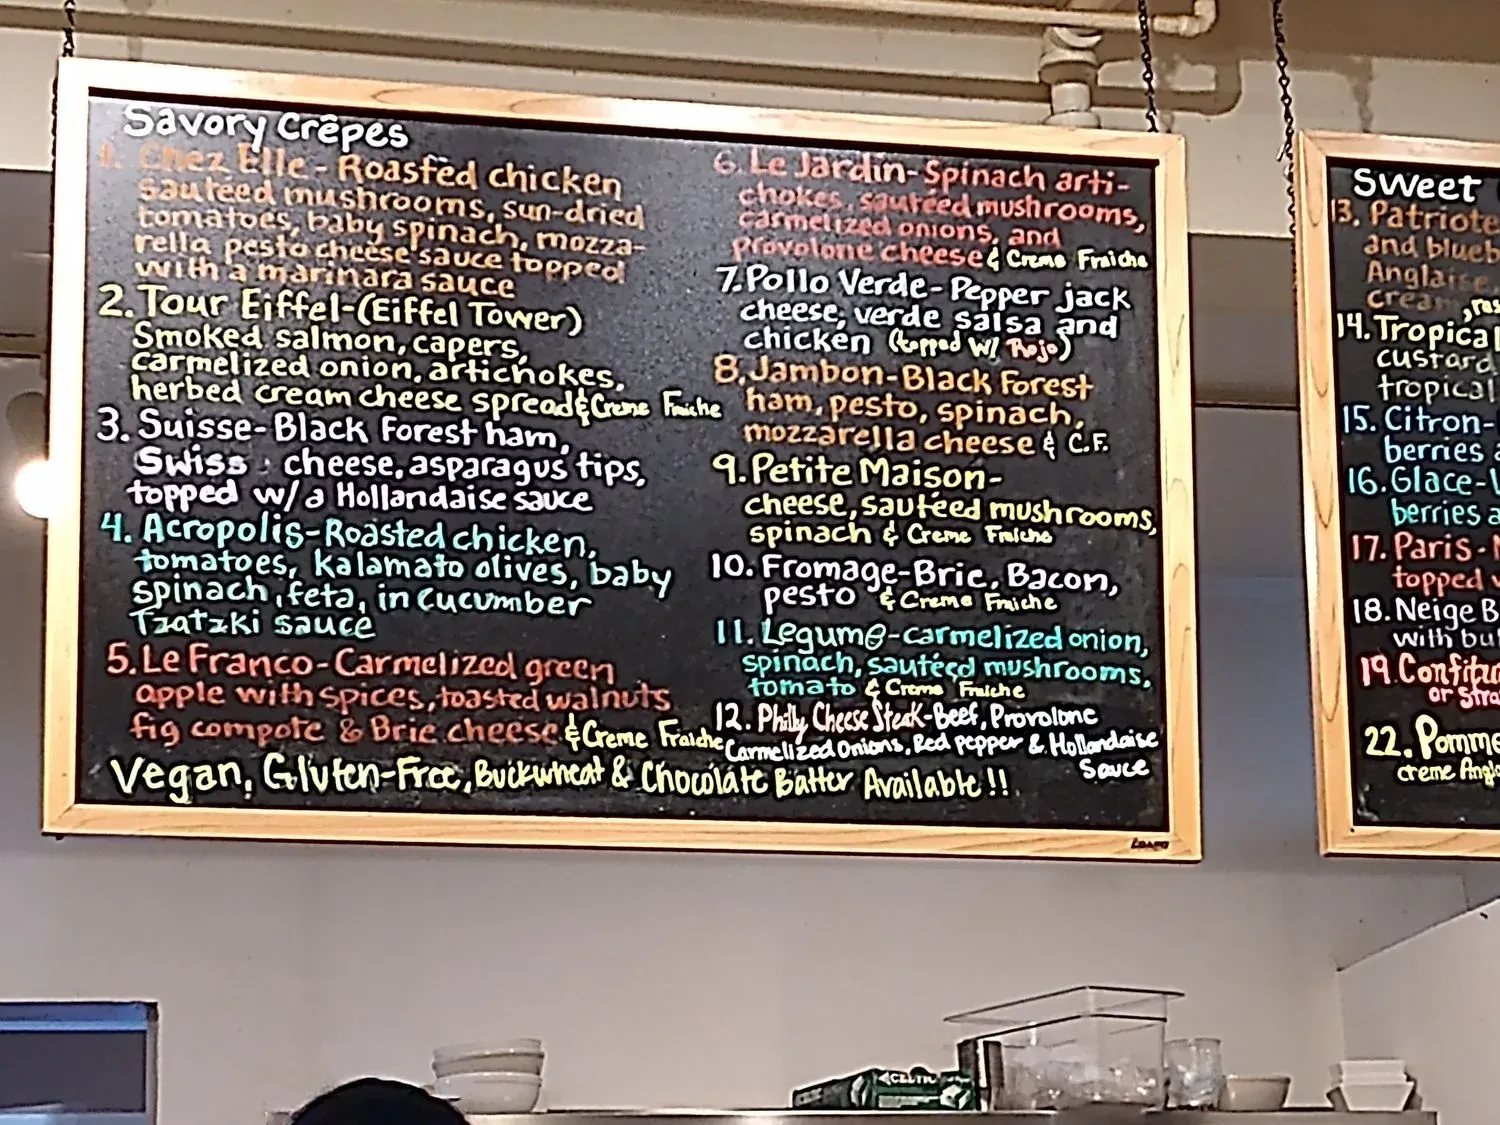 Savory Crêpes
1. Chez Elle - Roasted chicken
sauteed mushrooms, sun-dried
tomatoes, baby spinach, mozza-
rella pesto cheese sauce topped
with a marinara sauce
2. Tour Eiffel-(Eiffel Tower)
Smoked salmon, capers,
carmelized onion, artichokes,
herbed cream cheese spread & Creme Fraiche
3. Suisse-Black Forest ham,
Swiss cheese, asparagus tips,
topped w/a Hollandaise sauce
4. Acropolis-Roasted chicken,
tomatoes, kalamato olives, baby
spinach, feta, in cucumber
Tzatzki sauce
5. Le Franco-Carmelized green
apple with spices, toasted walnuts
fig compote & Brie cheese & Creme Fraiche
6. Le Jardin-Spinach arti-
chokes, sautéed mushrooms,
carmelized onions, and
provolone cheese & Creme Fraiche
7. Pollo Verde-Pepper jack
cheese, verde salsa and
chicken (topped w/ Rojo)
8. Jambon-Black Forest
ham, pesto, spinach,
mozzarella cheese & C.F.
9. Petite Maison-
cheese, sautéed mushrooms,
spinach & Creme Fraiche
10. Fromage-Brie, Bacon,
pesto & Creme Fraiche
11. Legume-carmelized onion,
spinach, sautéed mushrooms,
tomato & Creme Fraiche
12. Philly Cheese Steak-Beef, Provolone
Carmelized Onions, Red pepper & Hollandaise
Sauce
Vegan, Gluten-Free, Buckwheat & Chocolate Batter Available!!
Sweet
13. Patriote
and blueb
Anglaise,
cream, ras
14. Tropical
custard
tropical
15. Citron-
berries a
16. Glace-V
berries a
17. Paris-
topped w
18. Neige B
with bu
19. Confitu
or stra
22. Pomme
creme Angl
CELTIC